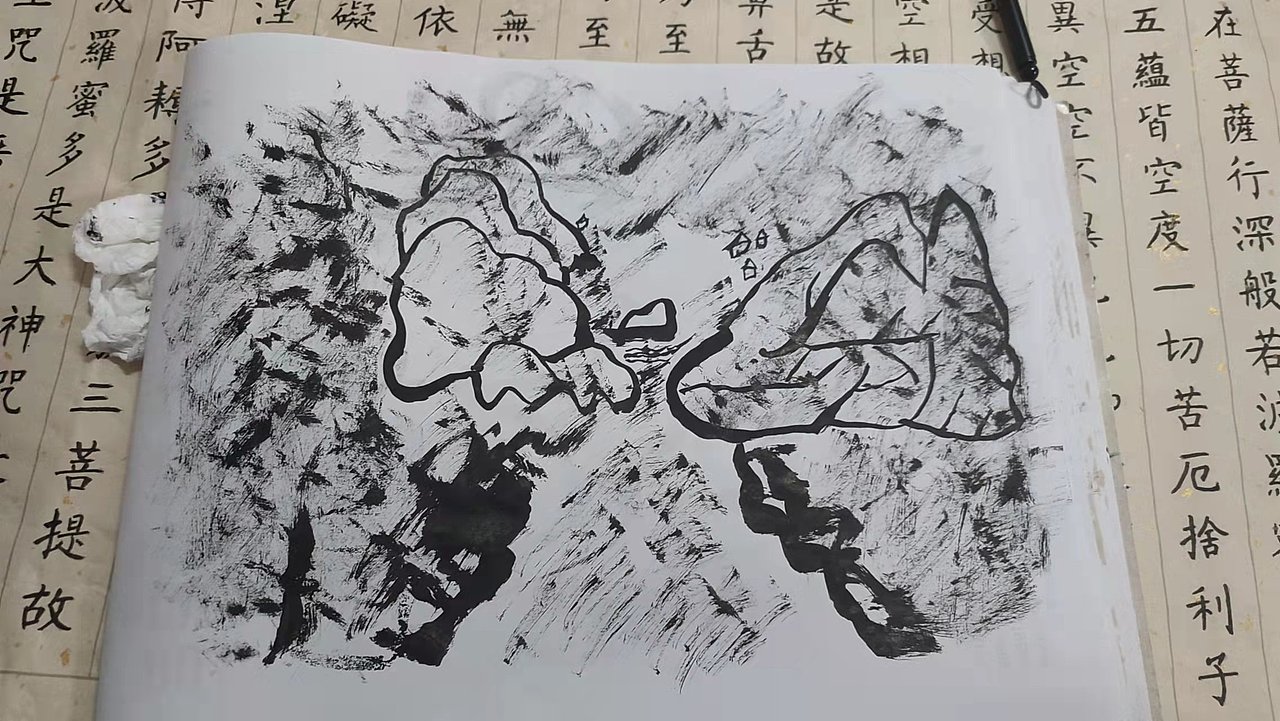 在菩薩行深般若波羅
五蘊皆空度一切苦厄捨利子
異空空不異
受相
空相
是故
舌
至
至
無
依
礙
涅
得阿耨多三菩提故
波羅蜜多是大神咒
咒是